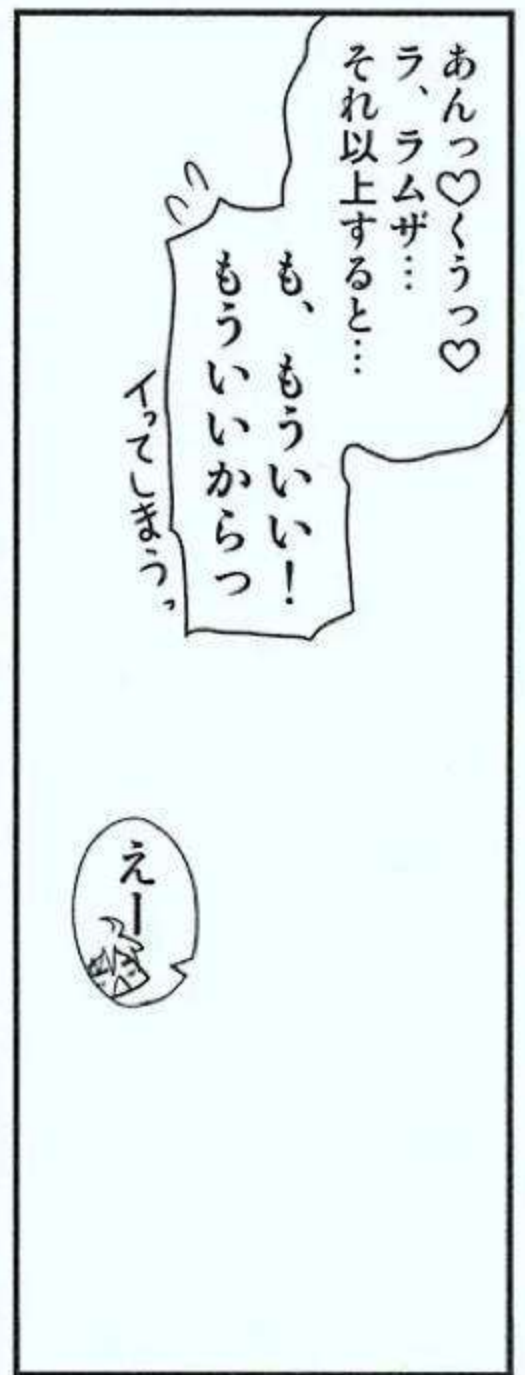 あんっ♡くうっ♡
ラ、ラムザ…
それ以上すると…
も、もういい！
もういいからっ
イってしまうっ
えー